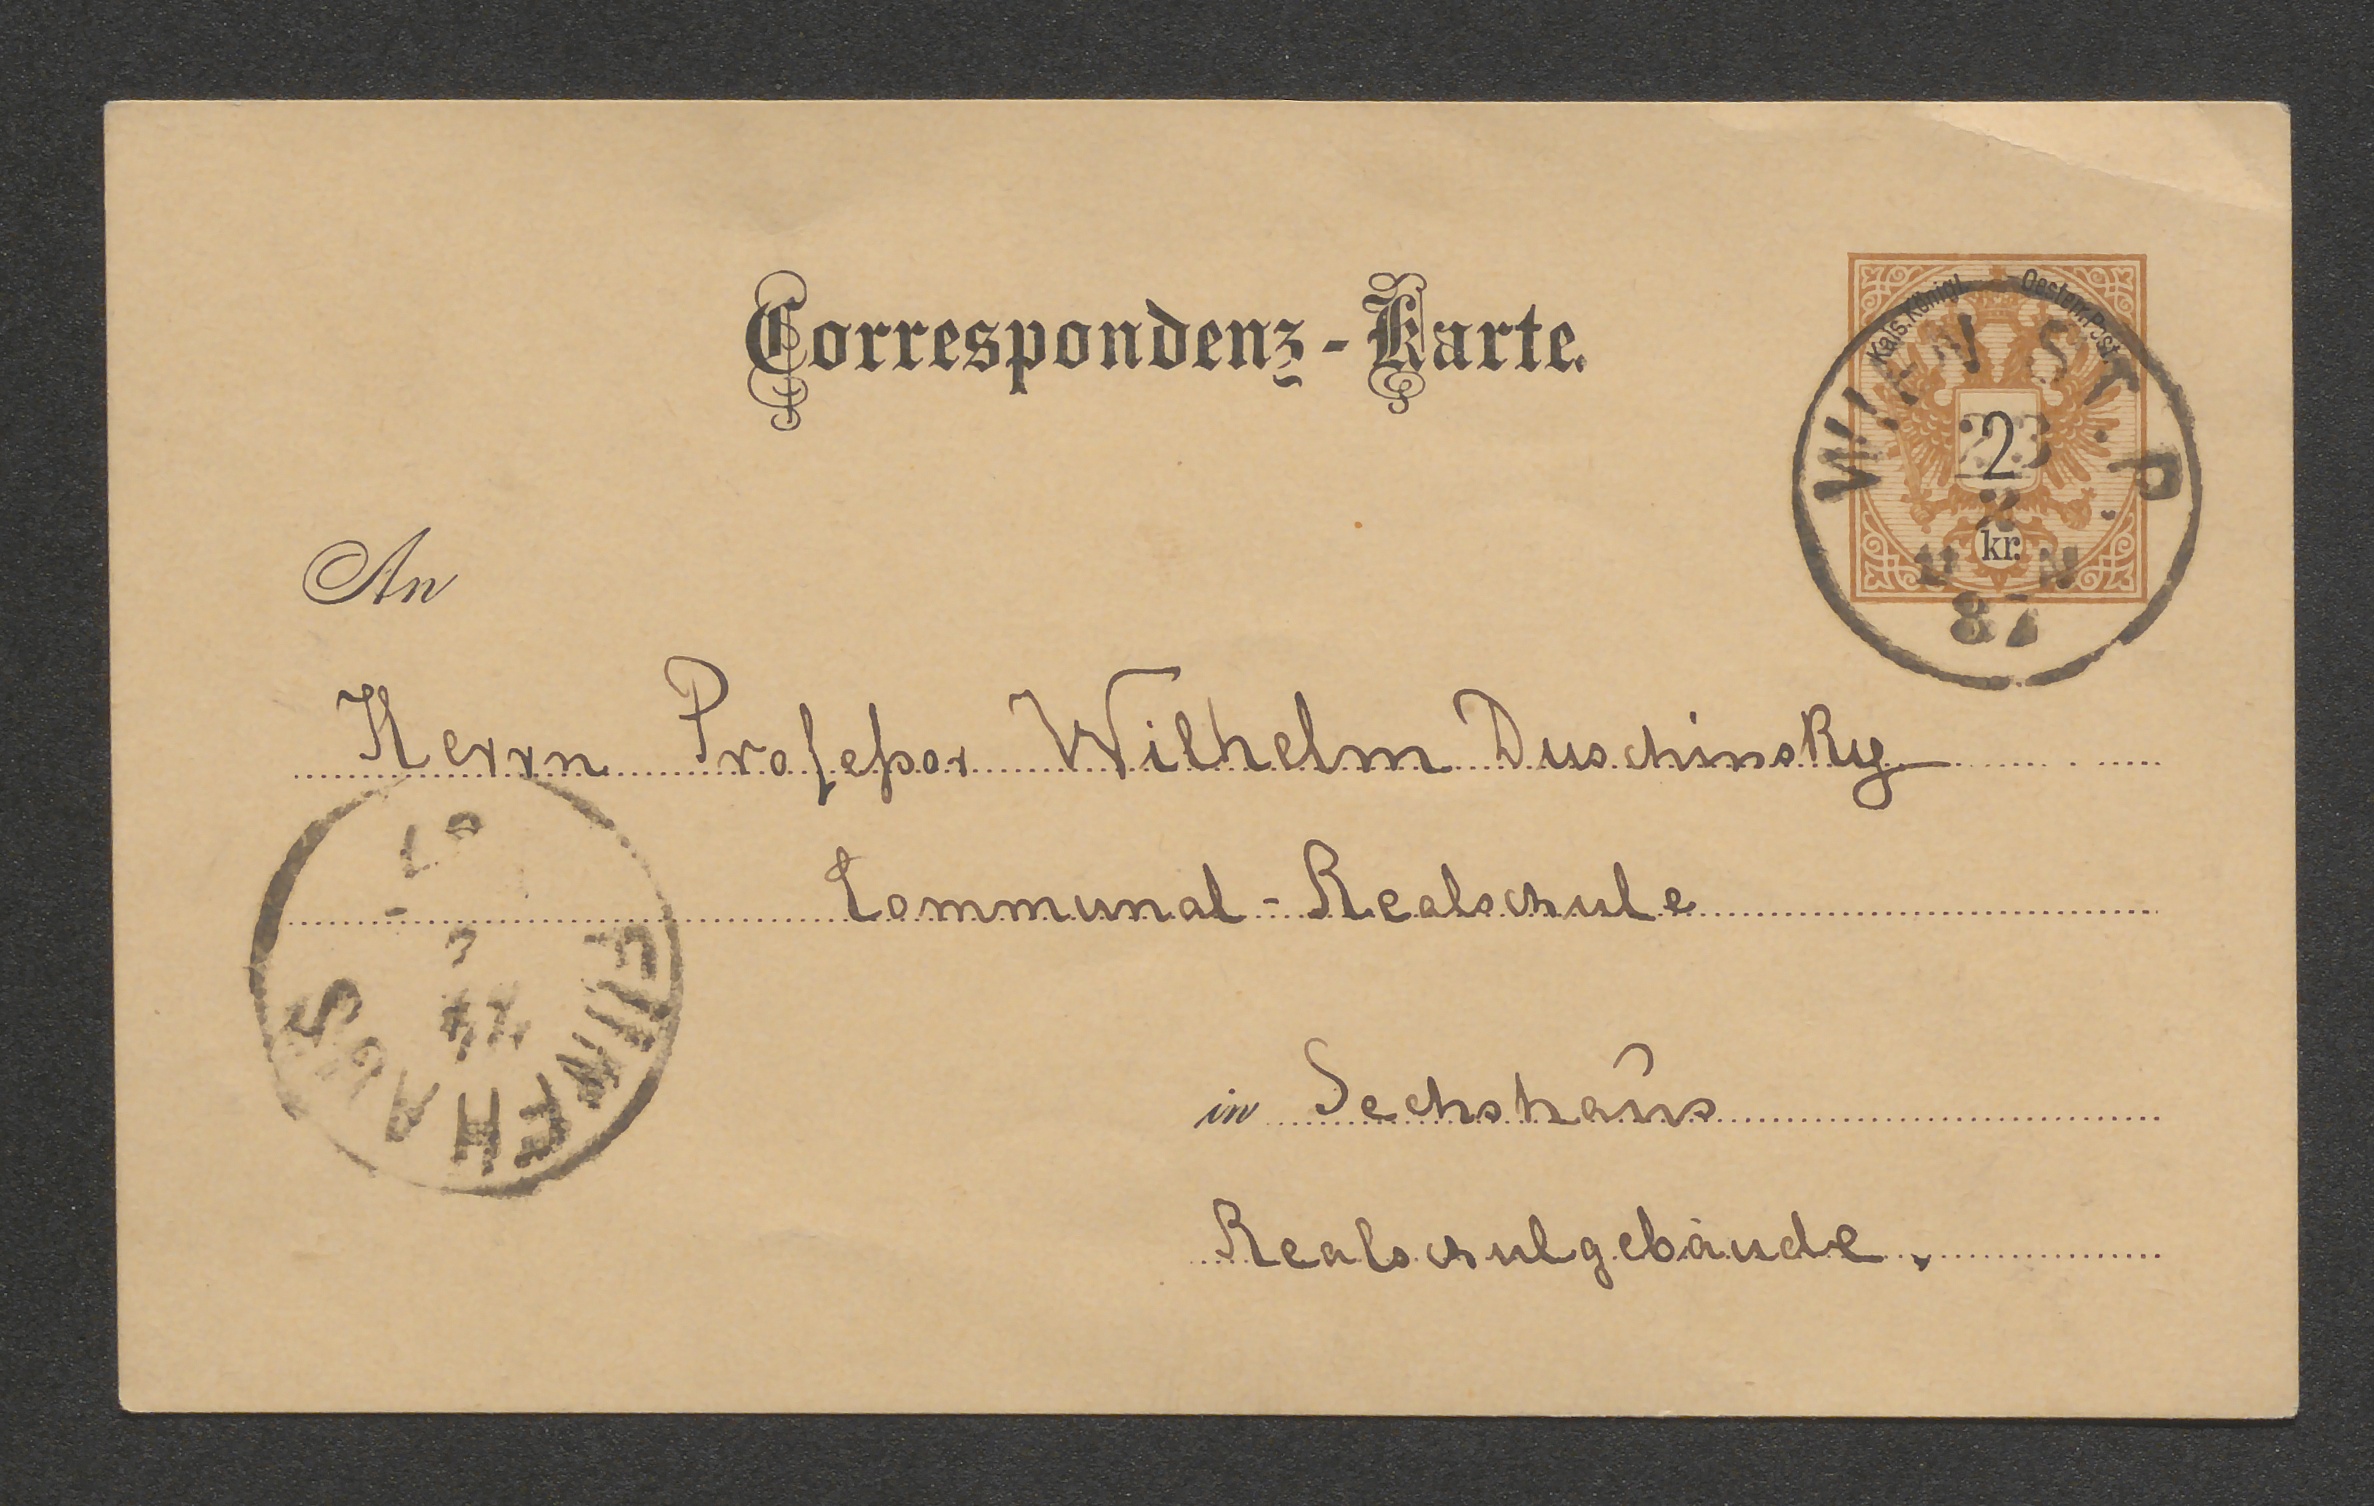 Correspondenz-Karte.
Kais. Königl. Oesterr. Post.
2
kr.
WIEN ST. P.
23
2
N
87
An
Herrn Profeßor Wilhelm Duschinsky
Communal-Realschule
in Sechshaus
Realschulgebäude.
FÜNFHAUS
24
2
87